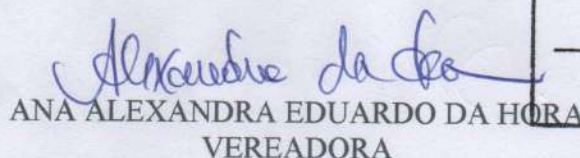 Alexandra da Hora
ANA ALEXANDRA EDUARDO DA HORA
VEREADORA